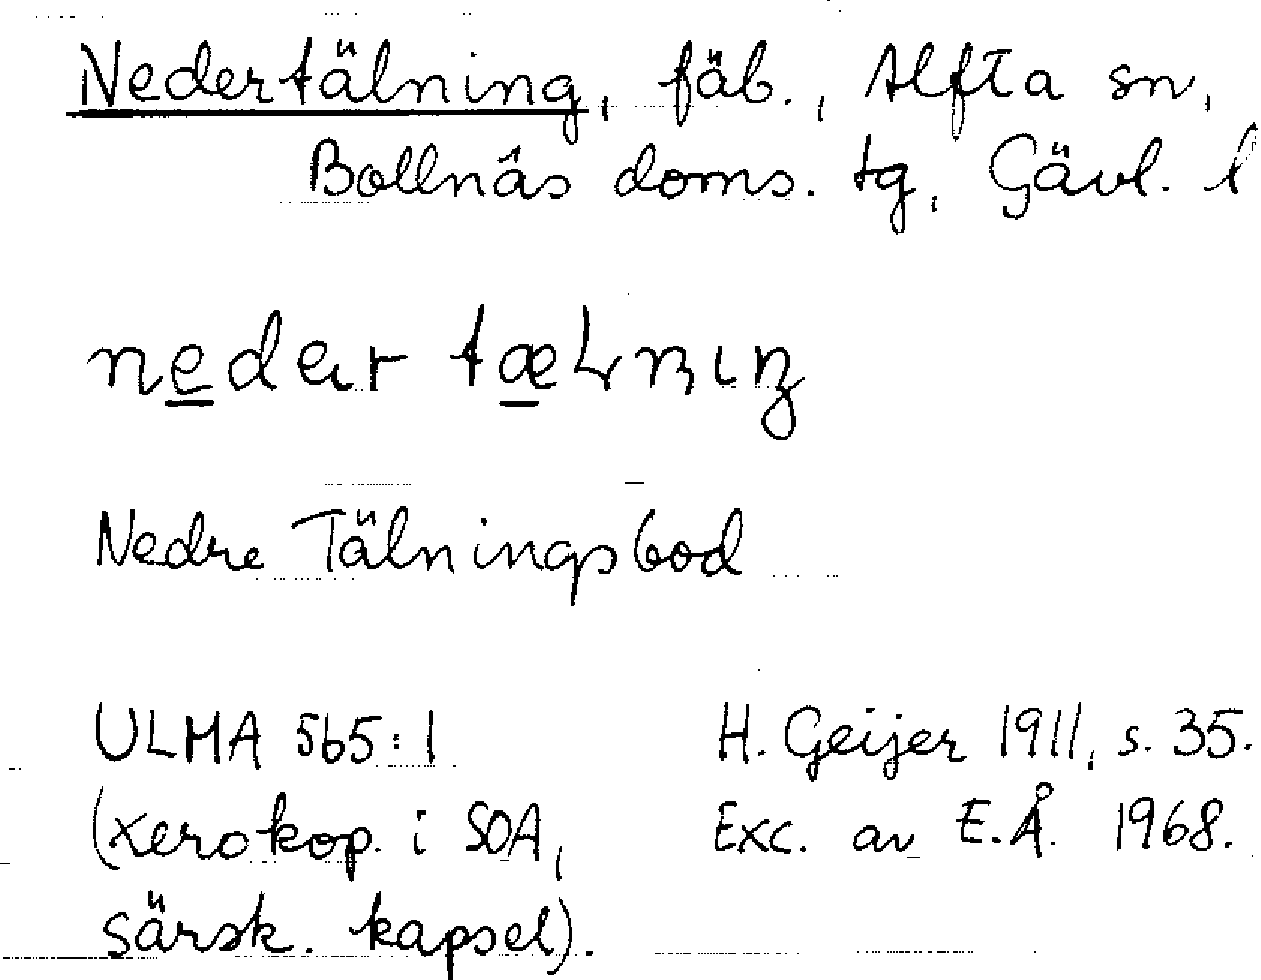 Nedertälning, fäb., Alfta sn,
Bollnäs doms. tg, Gävl. l
Nedre Tälningsbod
ULMA 565:1 H. Geijer 1911, s. 35.
(xerokop. i SOA, Exc. av E.Å. 1968.
särsk. kapsel).